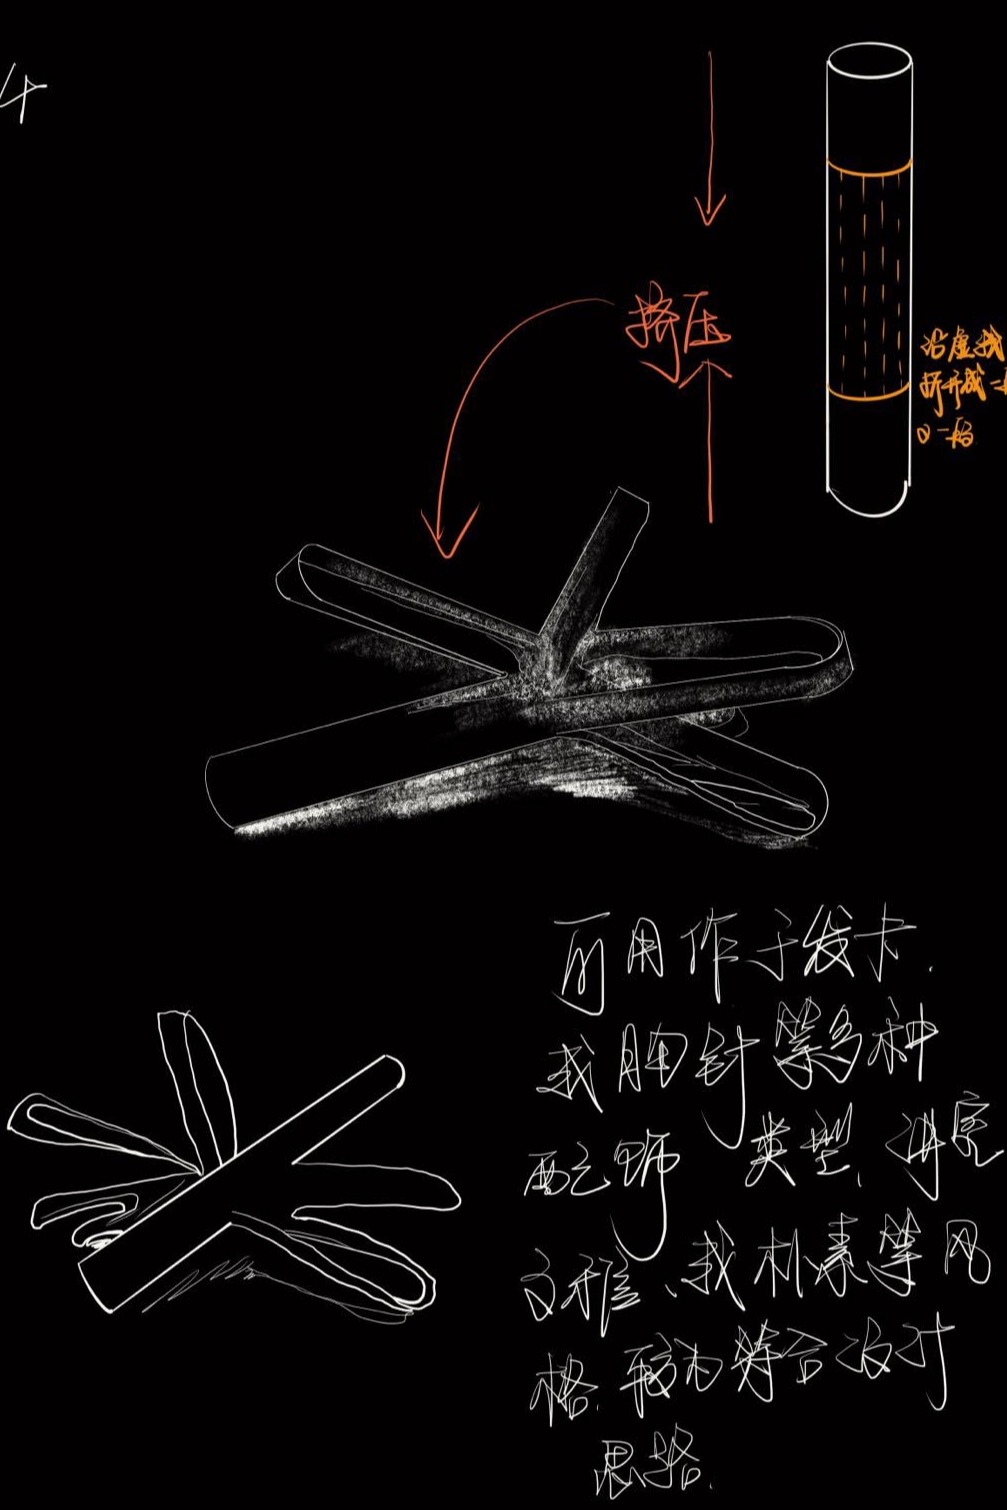 4
挤压
沿虚线
挤开成一
可用作于发卡.
或胸针等多种
配饰 类型,
文雅、或朴素等风
格.较为符合设计
思路.